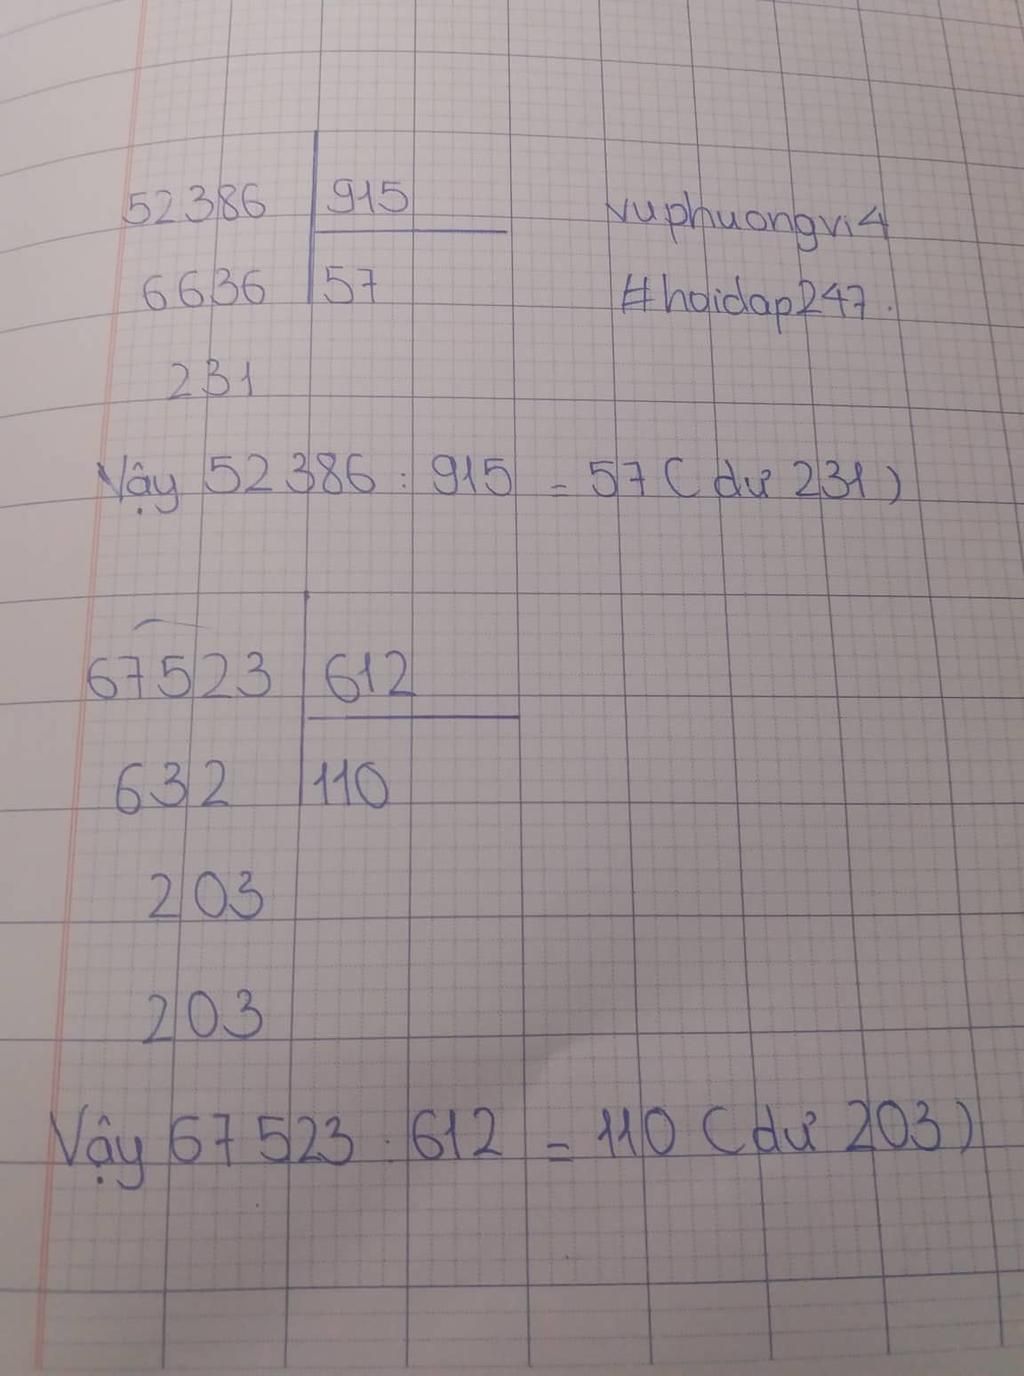 52386 915
6636 57
231
vuphuongvi4
#hoidap247.
Vậy 52386 : 915 = 57 (dư 231)
67523 612
632 110
203
203
Vậy 67523 : 612 = 110 (dư 203)